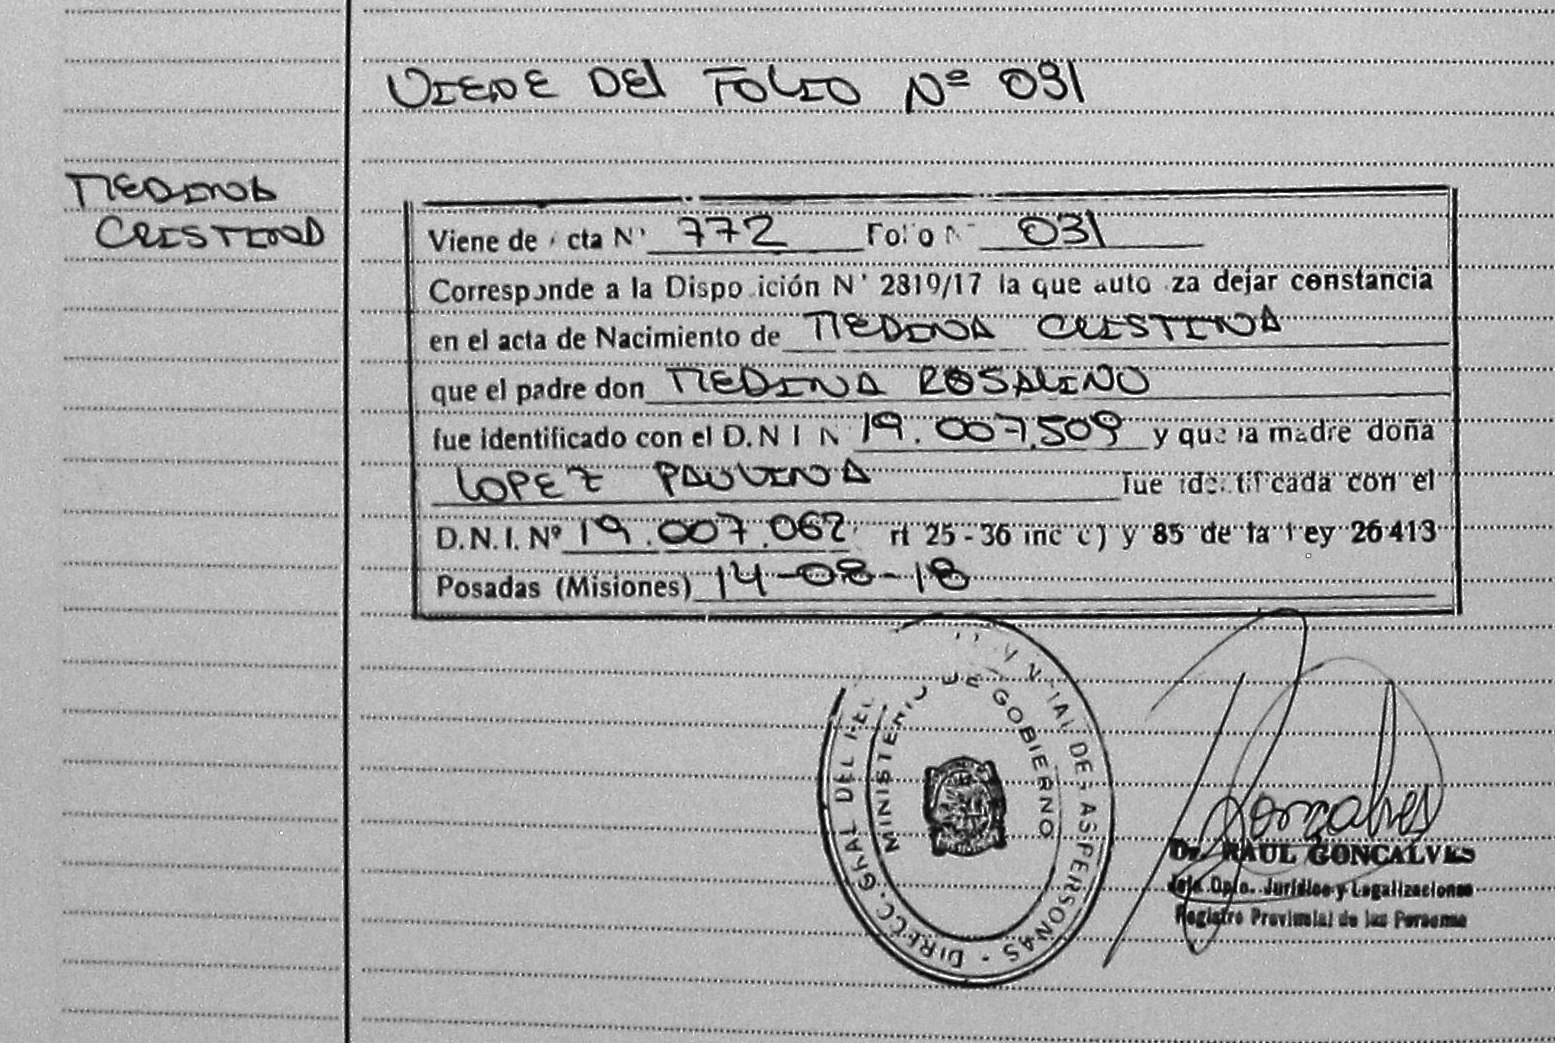 VIENE DEL FOLIO Nº 031
MEDINA
CRISTINA
Viene de cta Nº 772 Folio Nº 031
Corresponde a la Disposición Nº 2819/17 la que autoriza dejar constancia
en el acta de Nacimiento de MEDINA CRISTINA
que el padre don MEDINA ROSALINO
fue identificado con el D.N.I N 19.007.509 y que la madre doña
LOPEZ PAULINA fue identificada con el
D.N.I. Nº 19.007.062 rt 25-36 inc c) y 85 de la Ley 26413
Posadas (Misiones) 14-08-18
DIRECC. GRAL DEL REG VINCIAL DE LAS PERSONAS
MINISTERIO DE GOBIERNO
Goncalves
Dr. RAUL GONCALVES
Jefe Dpto. Jurídico y Legalizaciones
Registro Provincial de las Personas